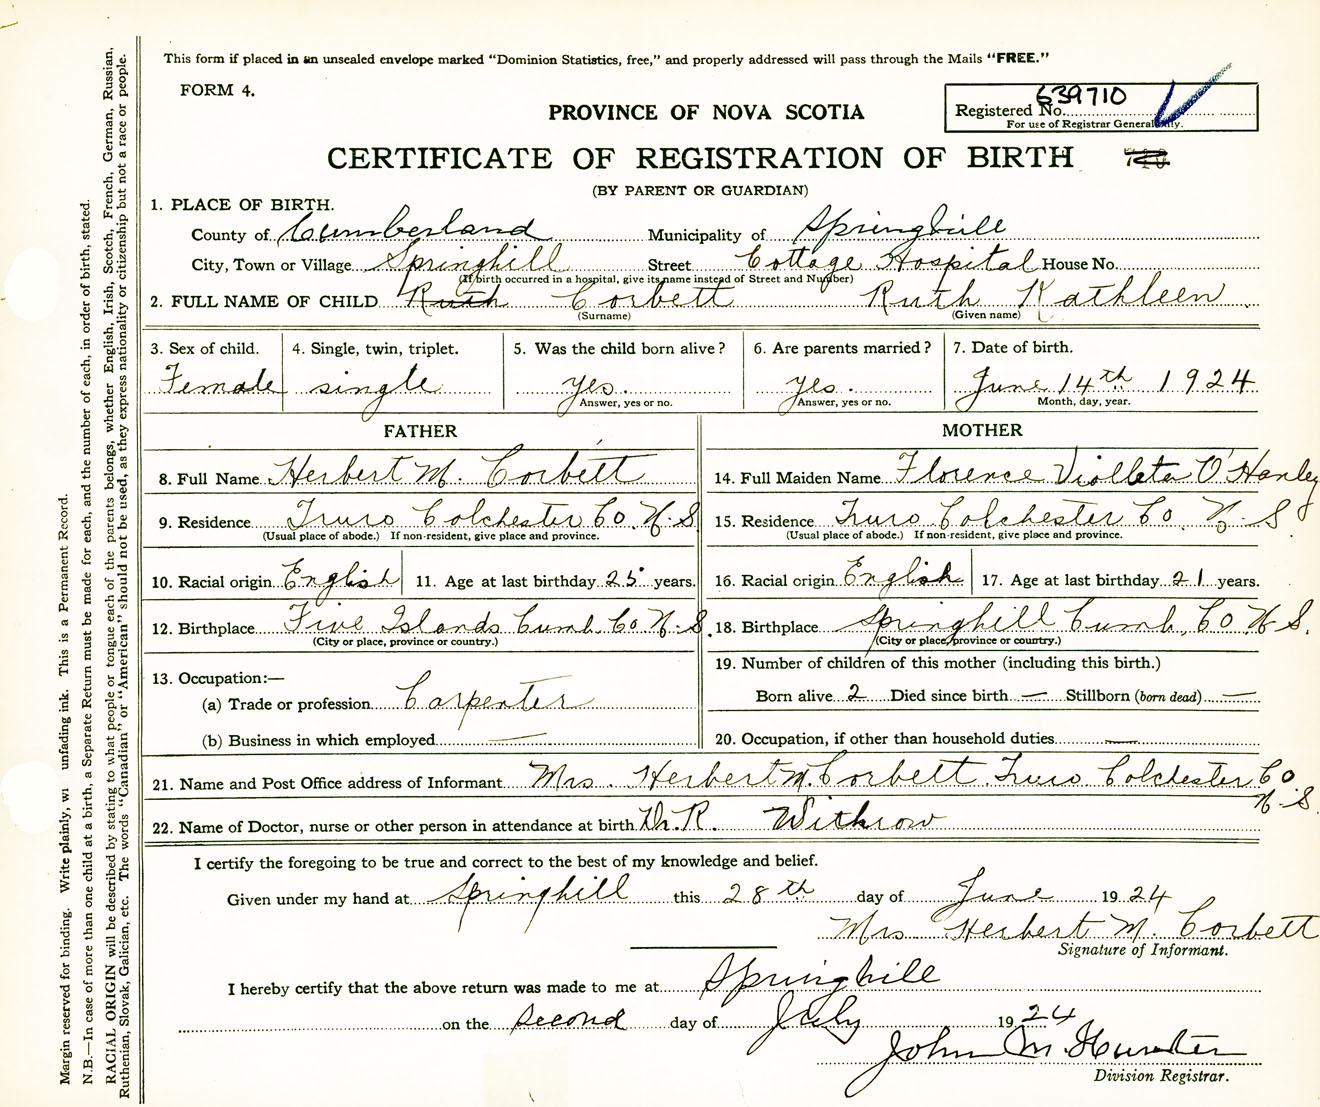 This form if placed in an unsealed envelope marked “Dominion Statistics, free,” and properly addressed will pass through the Mails “FREE.”
FORM 4.
639710
Registered No.
For use of Registrar General only.
PROVINCE OF NOVA SCOTIA
CERTIFICATE OF REGISTRATION OF BIRTH
(BY PARENT OR GUARDIAN)
1. PLACE OF BIRTH.
County of Cumberland Municipality of Springhill
City, Town or Village Springhill Street Cottage Hospital House No.
(If birth occurred in a hospital, give its name instead of Street and Number)
2. FULL NAME OF CHILD Ruth Corbett Ruth Kathleen
(Surname) (Given name)
3. Sex of child. 4. Single, twin, triplet. 5. Was the child born alive? 6. Are parents married? 7. Date of birth.
Female single yes. yes. June 14th 1924
Answer, yes or no. Answer, yes or no. Month, day, year.
FATHER MOTHER
8. Full Name Herbert M. Corbett 14. Full Maiden Name Florence Violleta O'Hanley
9. Residence Truro Colchester Co. N.S 15. Residence Truro Colchester Co N.S
(Usual place of abode.) If non-resident, give place and province. (Usual place of abode.) If non-resident, give place and province.
10. Racial origin English 11. Age at last birthday 25 years. 16. Racial origin English 17. Age at last birthday 21 years.
12. Birthplace Five Islands Cumb. Co N.S. 18. Birthplace Springhill Cumb. Co. N.S.
(City or place, province or country.) (City or place, province or country.)
13. Occupation:— 19. Number of children of this mother (including this birth.)
(a) Trade or profession Carpenter Born alive 2 Died since birth — Stillborn (born dead) —
(b) Business in which employed — 20. Occupation, if other than household duties —
21. Name and Post Office address of Informant Mrs. Herbert M. Corbett. Truro Colchester Co
N.S.
22. Name of Doctor, nurse or other person in attendance at birth Dr. R. Withrow
I certify the foregoing to be true and correct to the best of my knowledge and belief.
Given under my hand at Springhill this 28th day of June 1924
Mrs Herbert M. Corbett
Signature of Informant.
I hereby certify that the above return was made to me at Springhill
on the second day of July 1924
John M. Hunter
Division Registrar.
Margin reserved for binding. Write plainly, wi unfading ink. This is a Permanent Record.
N.B.—In case of more than one child at a birth, a Separate Return must be made for each, and the number of each, in order of birth, stated.
RACIAL ORIGIN will be described by stating to what people or tongue each of the parents belongs, whether English, Irish, Scotch, French, German, Russian,
Ruthenian, Slovak, Galician, etc. The words “Canadian” or “American” should not be used, as they express nationality or citizenship but not a race or people.